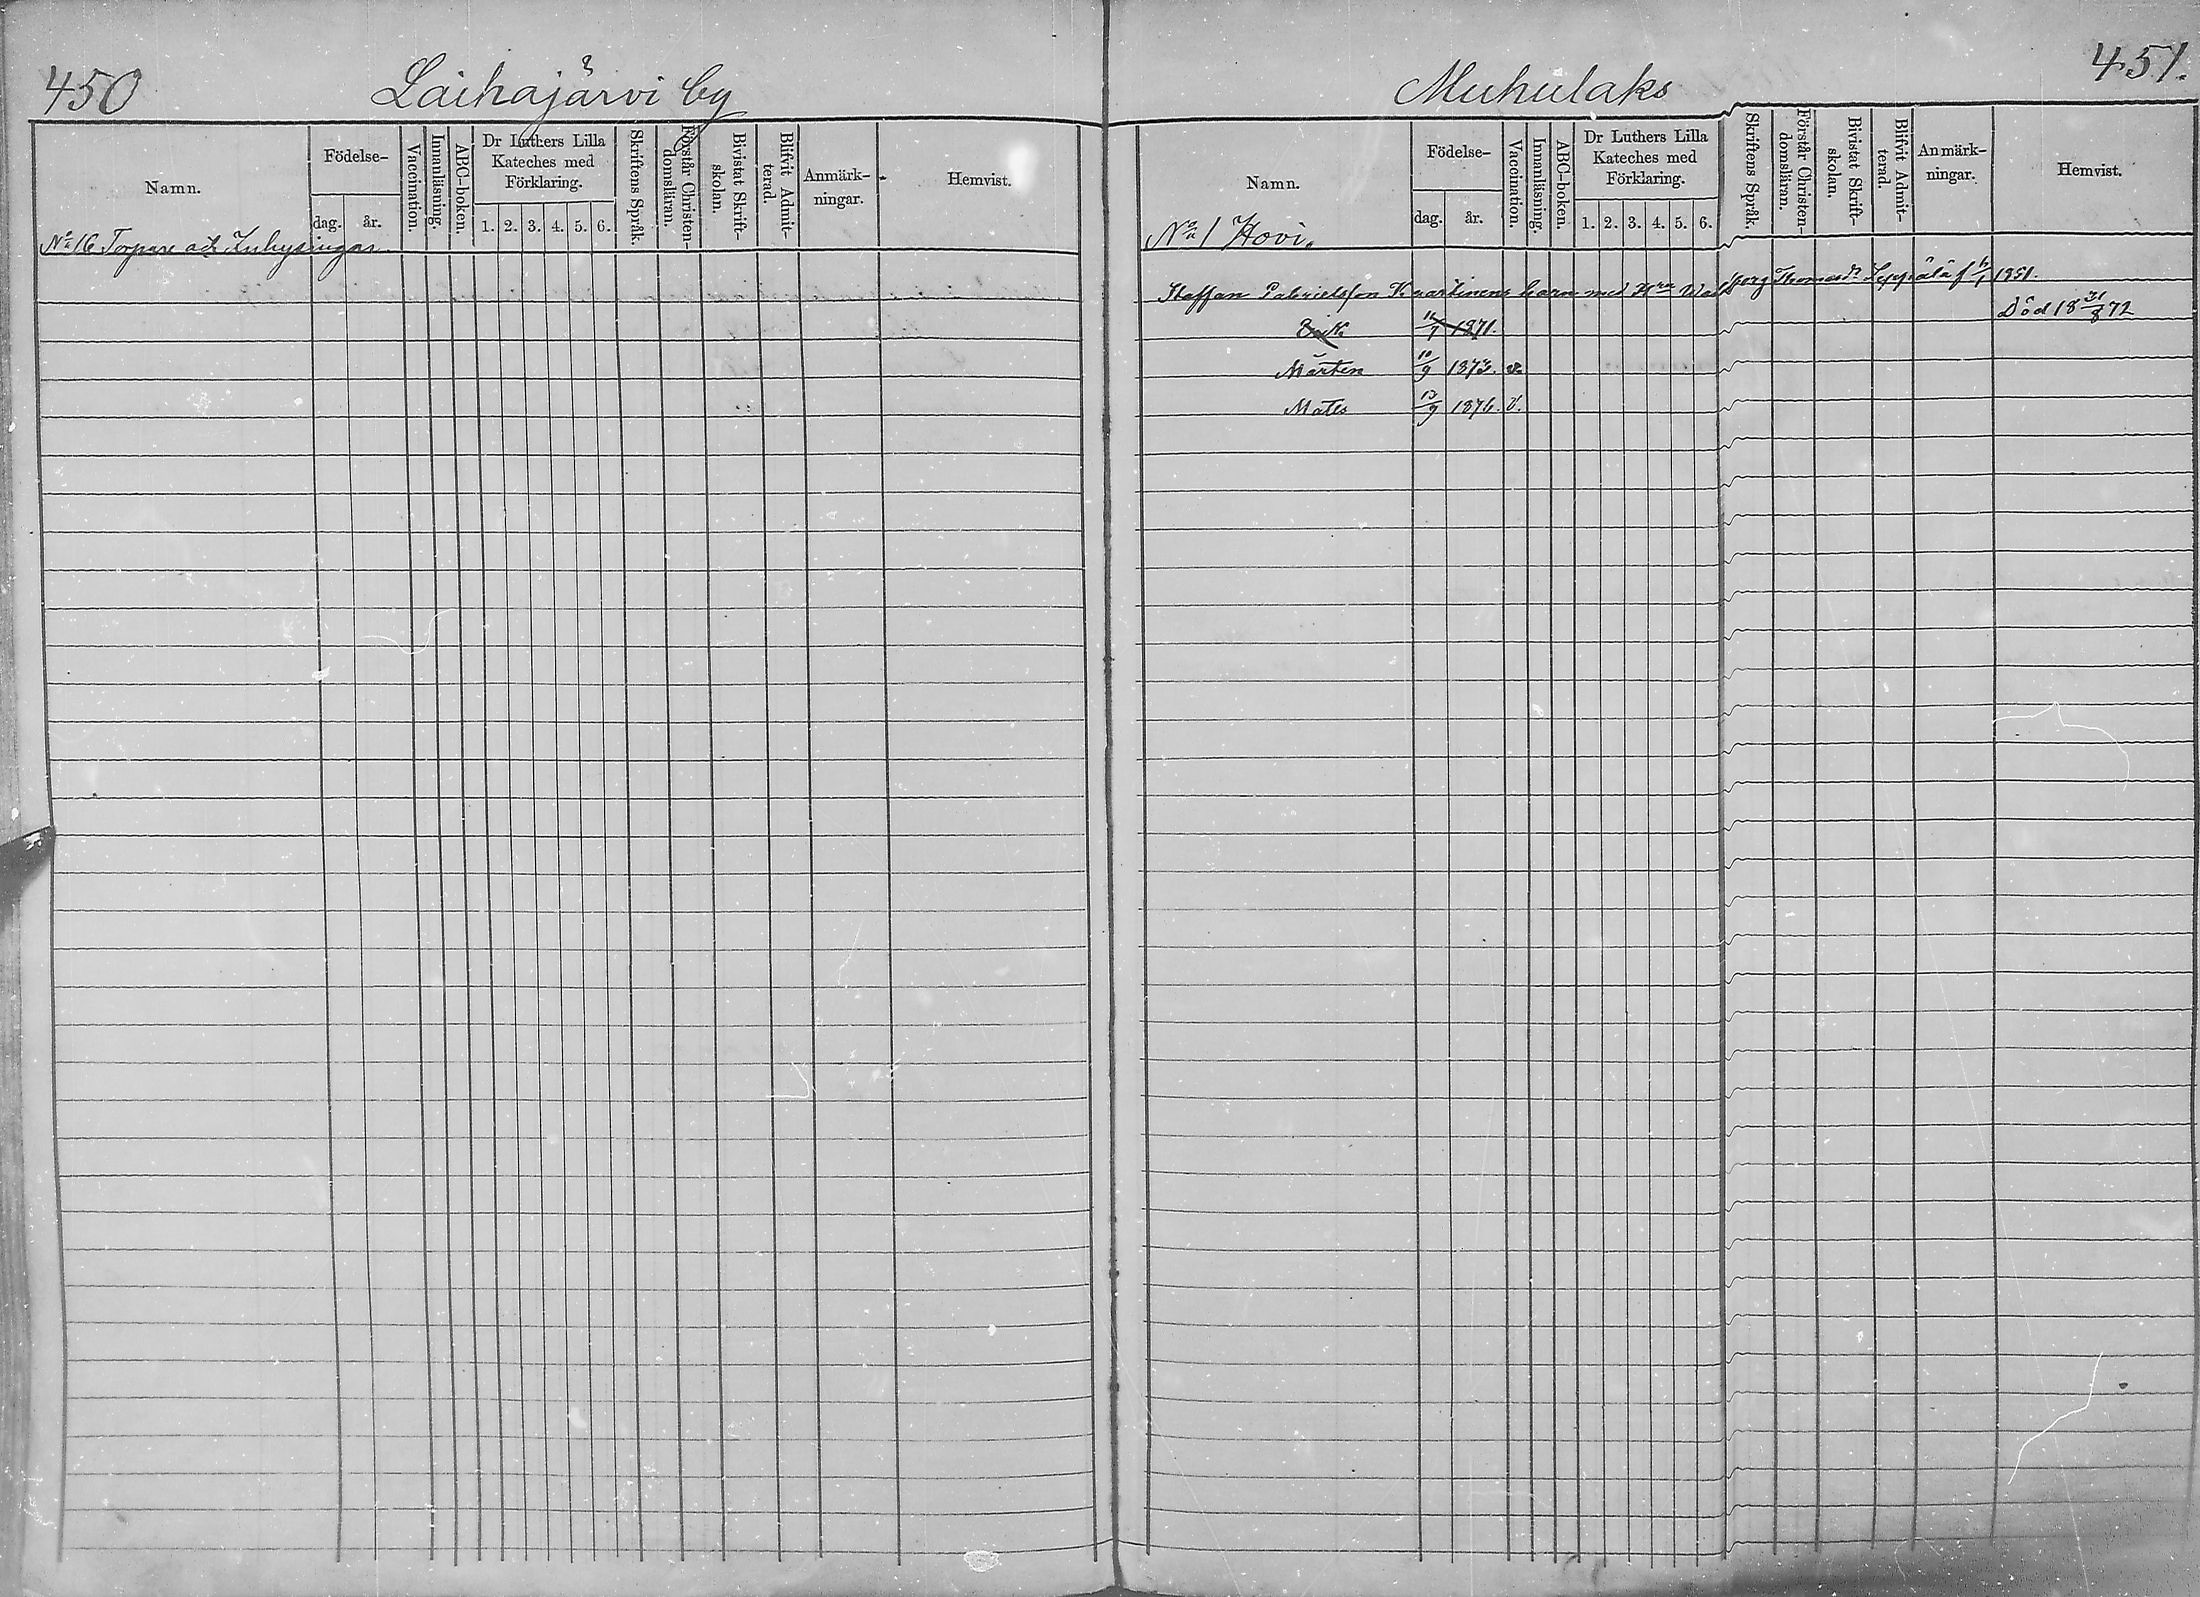 450
Laihajärvi by
Namn.
Födelse-
dag. år.
Vaccination.
Innanläsning.
ABC-boken.
Dr Luthers Lilla
Kateches med
Förklaring.
1. 2. 3. 4. 5. 6.
Skriftens Språk.
Förstår Christen-
domsläran.
Bivistat Skrift-
skolan.
Blifvit Admit-
terad.
Anmärk-
ningar.
Hemvist.
No 16 Torpare och Inhysingar
Muhulaks
451.
Namn.
Födelse-
dag. år.
Vaccination.
Innanläsning.
ABC-boken.
Dr Luthers Lilla
Kateches med
Förklaring.
1. 2. 3. 4. 5. 6.
Skriftens Språk.
Förstår Christen-
domsläran.
Bivistat Skrift-
skolan.
Blifvit Admit-
terad.
Anmärk-
ningar.
Hemvist.
No 1 Hovi.
Staffan Gabrielsson barn med Hru Walborg Thomasdr Leppälä f 1851.
Erik 1871. Död 18 31/8 72
Mårten 10/9 1873. v.
Mats 1876. v.